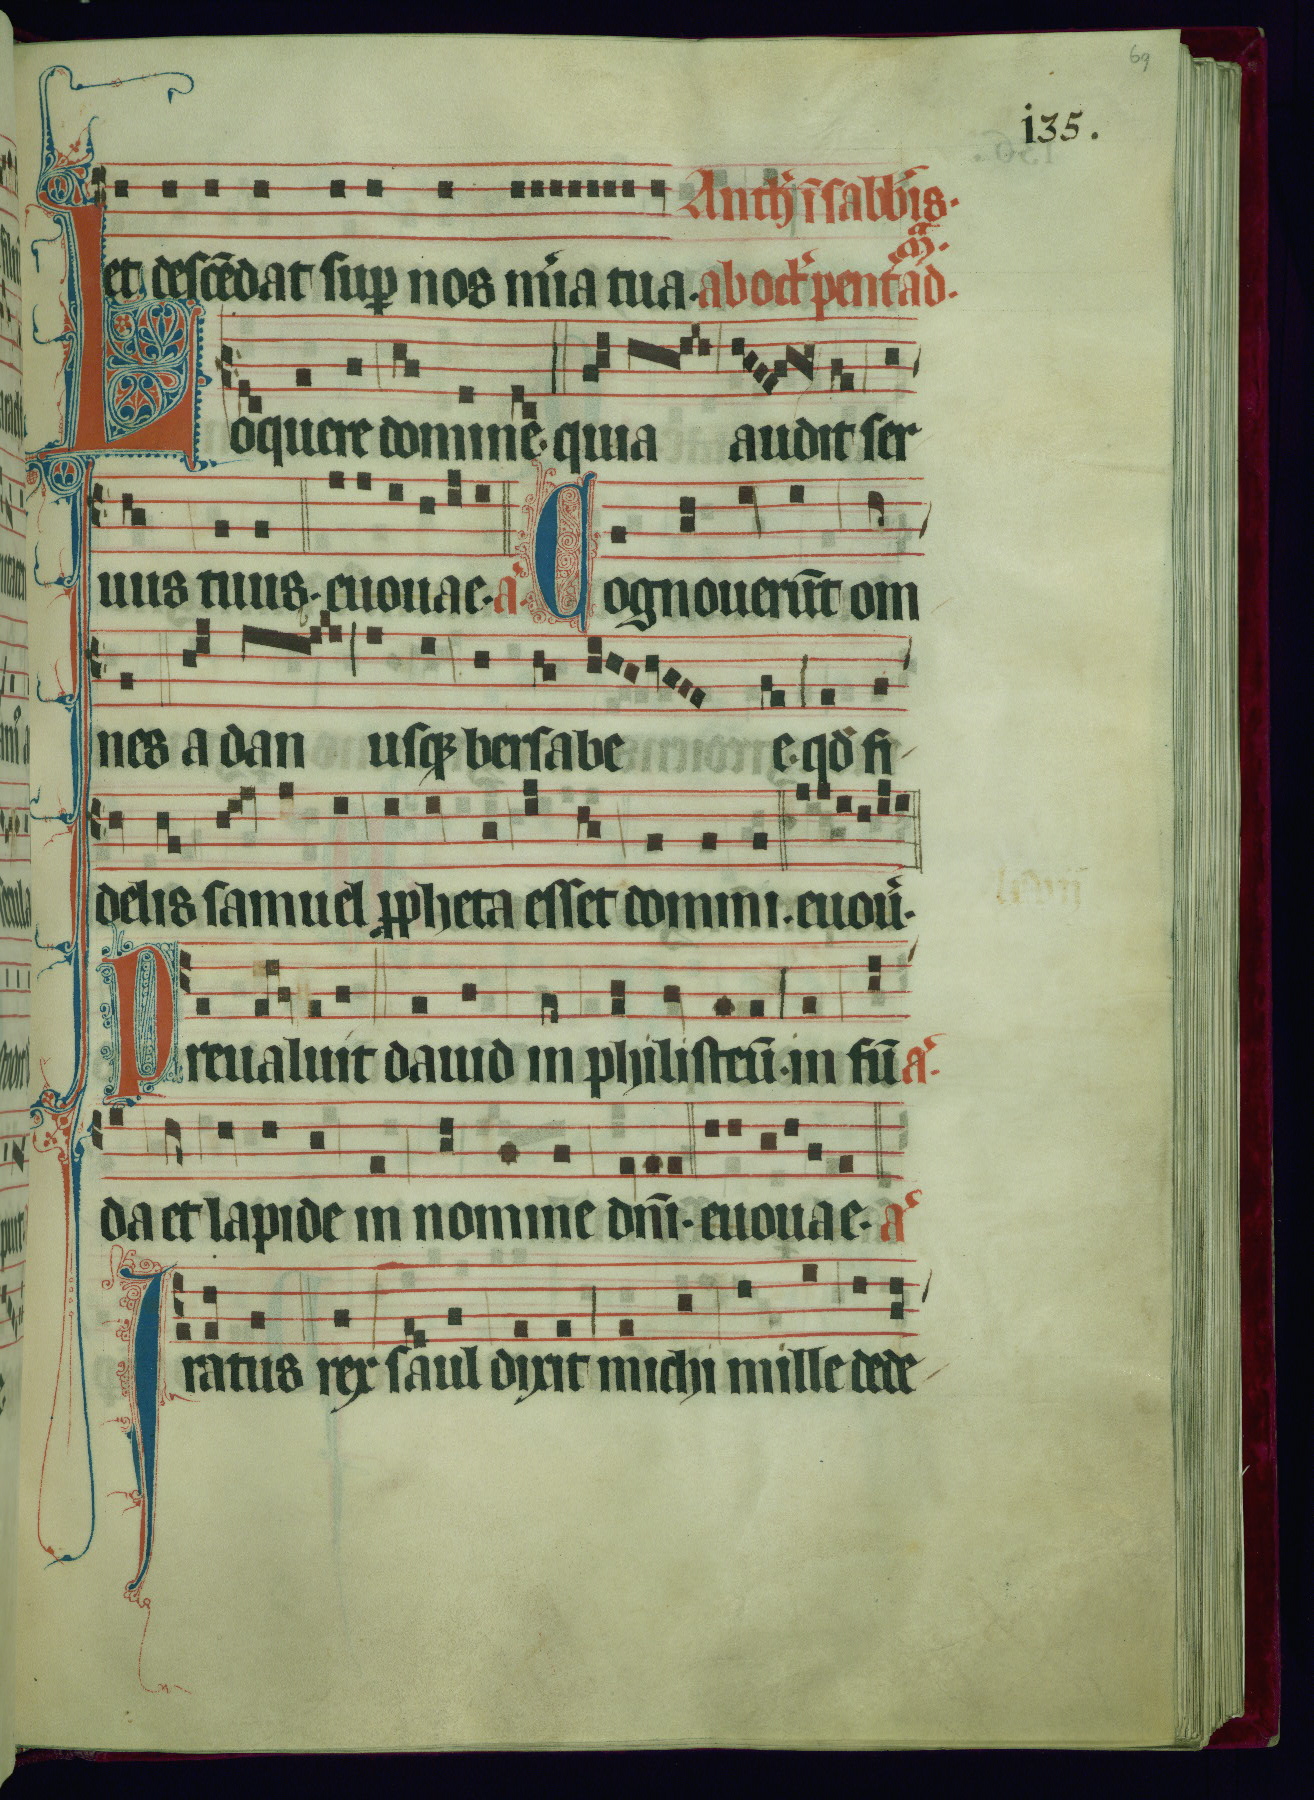 69
i35.
Antħ ī sabb̄is.
et descēdat sup nos m̄ia tua. ab oct̄ pent̄ ad
m̄.
Loquere domine. quia audit ser
uus tuus. euouae. a̾. Cognouerūt om
nes a dan usq bersabe e. qd̾ fi
delis samuel ppheta esset domini. euou̾.
Preualuit dauid in philisteū. in fū a̾.
da et lapide in nomine dn̄i. euouae. a̾
Iratus rex saul dixit michi mille dede